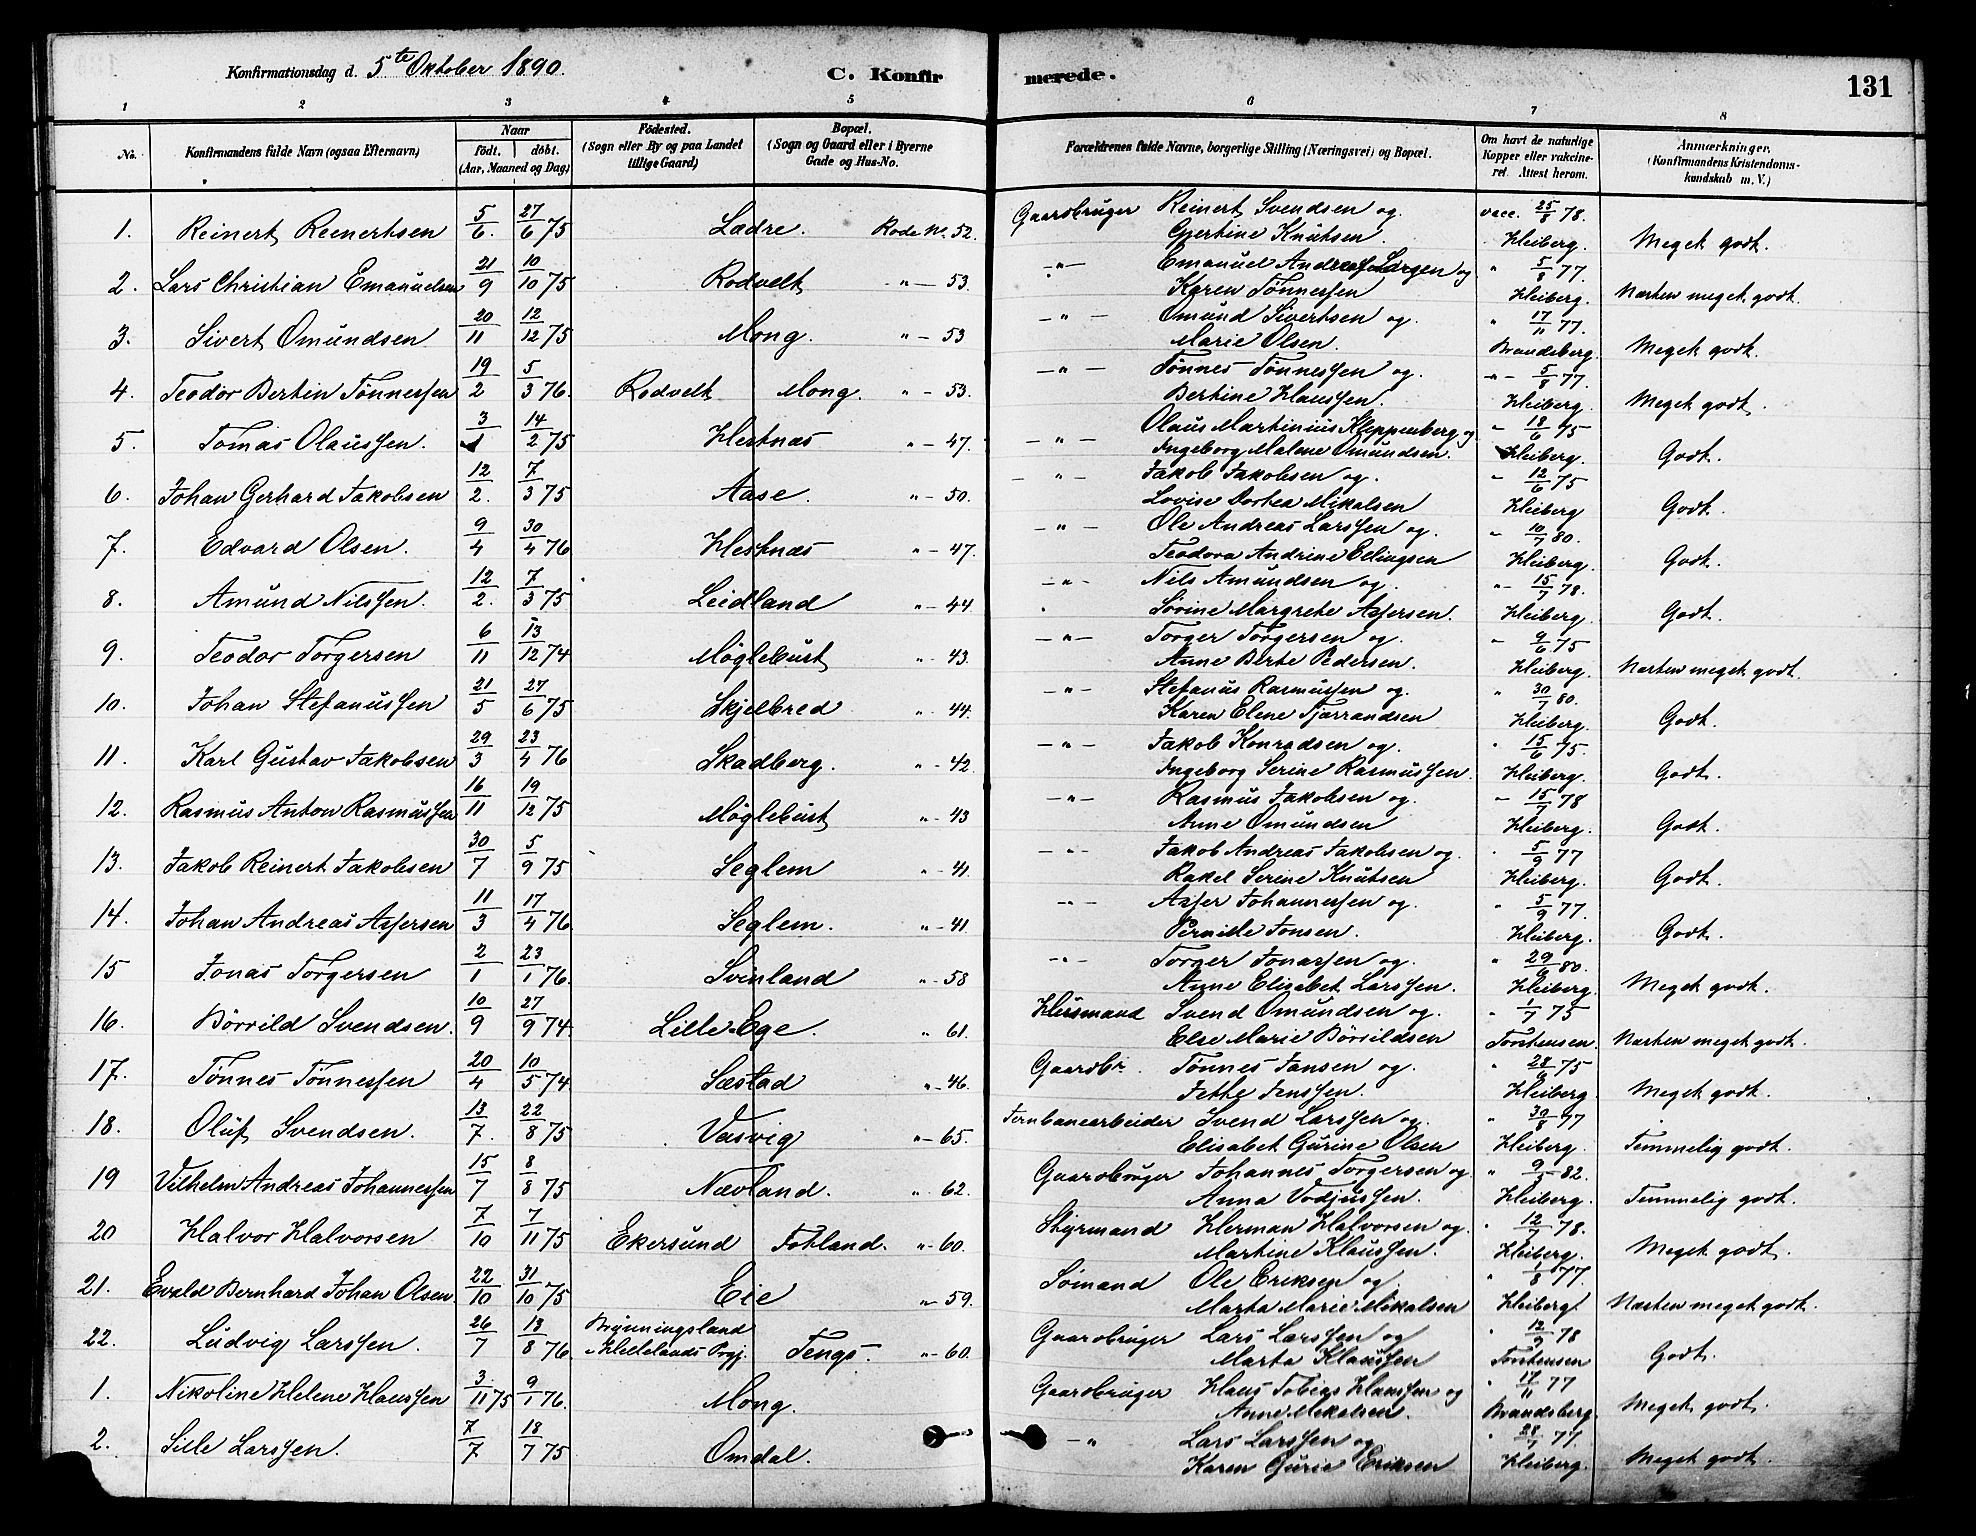 Konfirmationsdag d. 5te Oktober 1890. C. Konfirmerede. 131
1 2 3 4 5 6 7 8
No. Konfirmandens fulde Navn (ogsaa Efternavn) Naar født. døbt. (Aar, Maaned og Dag) Fødested. (Sogn eller By og paa Landet tillige Gaard) Bopæl. (Sogn og Gaard eller i Byerne Gade og Hus-No. Forældrenes fulde Navne, borgerlige Stilling (Næringsvei) og Bopæl. Om havt de naturlige Kopper eller vakcineret. Attest herom. Anmærkninger. (Konfirmandens Kristendomskundskab m. V.)
1. Reinert Reinertsen 5/6. 27/6 75 Ladre. Rode No. 52. Gaardbruger Reinert Svendsen og vacc. 25/8 78.
Gjertine Knutsen. Heiberg. Meget godt.
2. Lars Christian Emanuelsen 21/9 10/10 75 Rodvelt " — 53. — " — Emanuel Andreas Largen og " 5/8 77.
Karen Tønnessen Heiberg. Næsten meget godt.
3. Sivert Omundsen 20/11 12/12 75 Mong. " — 53 — " — Omund Sivertsen og. " 17/11 77.
Marie Olsen. Brandsberg. Meget godt.
4. Teodor Bertin Tønnessen 19/2 5/3 76. Rodvelt Mong. " — 53. — " — Tønnes Tønnessen og. " 5/8 77.
Bertine Hanssen. Heiberg. Meget godt.
5. Tomas Olaussen. 3/1 14/2 75 Hestnæs " — 47. — " — Olaus Martinius Kleppenberg og " 18/6 75
Ingeborg Malene Omundsen. Heiberg. Godt.
6. Johan Gerhard Jakobsen 12/2. 7/3 75 Aase. " — 50. — " — Jakob Jakobsen og. " 12/6 75
Lovise Dortea Mikalsen Heiberg Godt.
7. Edvard Olsen. 9/4 30/4 76 Hestnæs " — 47. — " — Ole Andreas Larssen og. " 10/7 80.
Teodora Andrine Ellingsen Heiberg. Godt.
8. Amund Nilssen. 12/2. 7/3 75 Leidland " — 44 — " — Nils Amundsen og. " 15/7 78.
Sørine Margrete Assersen. Heiberg. Godt.
9. Teodor Torgersen 6/11 13/12 74 Møglebust " — 43. — " — Torger Torgersen og. " 9/6 75
Anne Berte Pedersen. Heiberg. Næsten meget godt.
10. Johan Stefanussen 21/5 27/6 75 Skjelbred " — 44. — " — Stefanus Rasmussen og. " 30/7 80.
Karen Elene Tjørrandsen Heiberg. Godt.
11. Karl Gustav Jakobsen 29/3 23/4 76 Skadberg. " — 42. — " — Jakob Konradsen og. " 15/6 75.
Ingeborg Serine Rasmussen. Heiberg. Godt.
12. Rasmus Anton Rasmussen 16/11 19/12 75 Møglebust " — 43 — " — Rasmus Jakobsen og. " 15/7 78
Anne Omundsen Heiberg. Godt.
13. Jakob Reinert Jakobsen 30/7 5/9 75 Seglem " — 41. — " — Jakob Andreas Jakobsen og. " 5/9 77
Rakel Serine Knutsen Heiberg. Godt.
14. Johan Andreas Assersen 11/3 17/4 76 Seglem. " — 41. — " — Asser Johannessen og. " 5/9 77.
Pernille Jonsen. Heiberg. Godt.
15 Jonas Torgersen 2/1 23/1 76. Svinland " — 58 — " — Torger Jonassen og. " 29/6 80.
Anne Elisabet Larssen. Heiberg. Meget godt.
16. Børrild Svendsen. 10/9 27/9 74. Lille Ege. " 61. Husmand Svend Omundsen og. " 1/7 75
Else Marie Børrildsen Torstensen. Næsten meget godt.
17. Tønnes Tønnessen 20/4 10/5 74 Sæstad " — 46. Gaardbr. Tønnes Jansen og. " 28/6 75
Jette Jenssen. Heiberg. Meget godt.
18. Oluf Svendsen. 13/7. 22/8 75 Vasvig " — 65. Jernbanearbeider Svend Larssen og. " 30/8 77
Elisabet Gurine Olsen Heiberg. Temmelig godt.
19 Vilhelm Andreas Johannessen 15/7 8/8 75 Nævland. " 62. Gaardbruger Johannes Torgersen og " 82.
Anna Heiberg. Temmelig godt.
20 Halvor Halvorsen 7/10 7/11 75 Ekersund Fotland. " — 60. Styrmand Herman Halvorsen og. " 12/7 78.
Martine Klaussen. Heiberg. Meget godt.
21. Evald Bernhard Johan Olsen. 22/10 31/10 75 Eie " — 59. Sømand Ole Eriksen og. " 1/8 77.
Marta Marie Mikalsen Heiberg. Næsten meget godt.
22. Ludvig Larssen. 26/7 13/8 76. Brynningsland Hellelands Prgj. Tengs. " — 60. Gaardbruger Lars Larssen og " 12/9 78
Marta Klaussen Torstensen Godt.
1. Nikoline Helene Hanssen 3./11 75 9/1 76. Mong. Gaardbruger Hans Tobias Hanssen og " 17/11 77
Anne Mikalsen. Brandsberg. Meget godt.
2. Sille Larssen. 7/7 18/7 75 Omdal. — " Lars Larssen og " 28/7 77.
Karen Gurie Eriksen Heiberg. Meget godt.